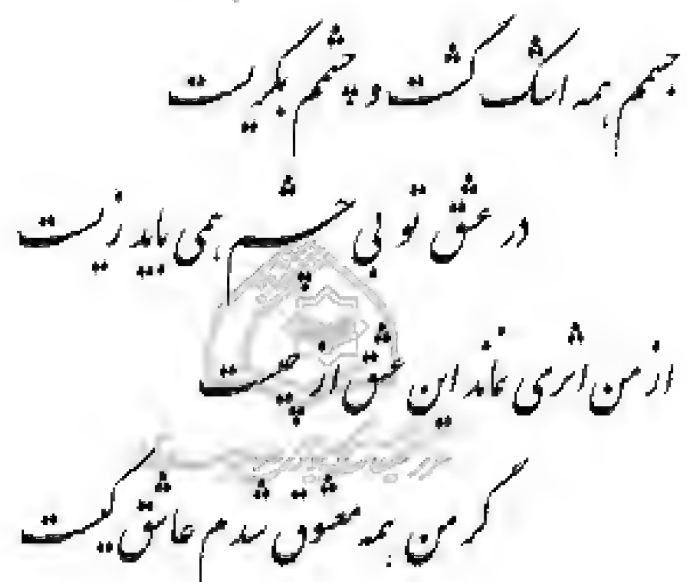 جسمم همه اشک گشت و چشمم بگریست
در عشق تو بی چشم همی باید زیست
از من اثری نماند این عشق از چیست
گر من همه معشوق شدم عاشق کیست